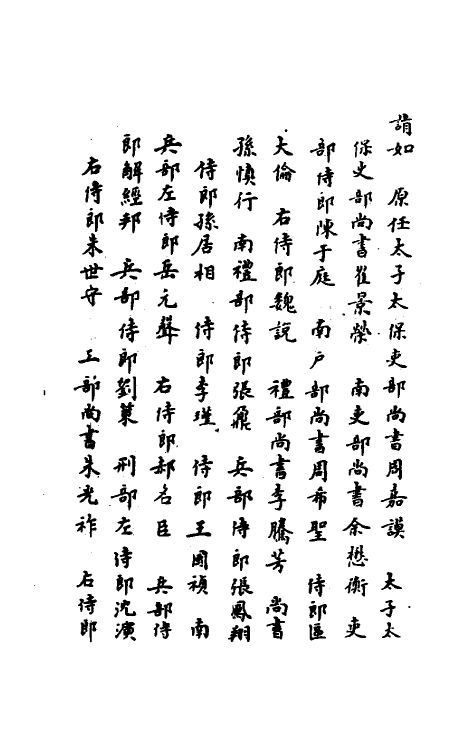 請如 原任太子太保吏部尚書周嘉謨 太子太
保吏部尚書崔景榮 南吏部尚書余懋衡 吏
部侍郎陳于庭 南户部尚書周希聖 侍郎區
大倫 右侍郎魏說 禮部尚書李騰芳 尚書
孫慎行 南禮部侍郎張鼐 兵部侍郎張鳳翔
侍郎孫居相 侍郎李瑾 侍郎王國禎 南
兵部左侍郎岳元聲 右侍郎郝名臣 兵部侍
郎解經邦 兵部侍郎劉策 刑部左侍郎沈演
右侍郎朱世守 工部尚書朱光祚 右侍郎